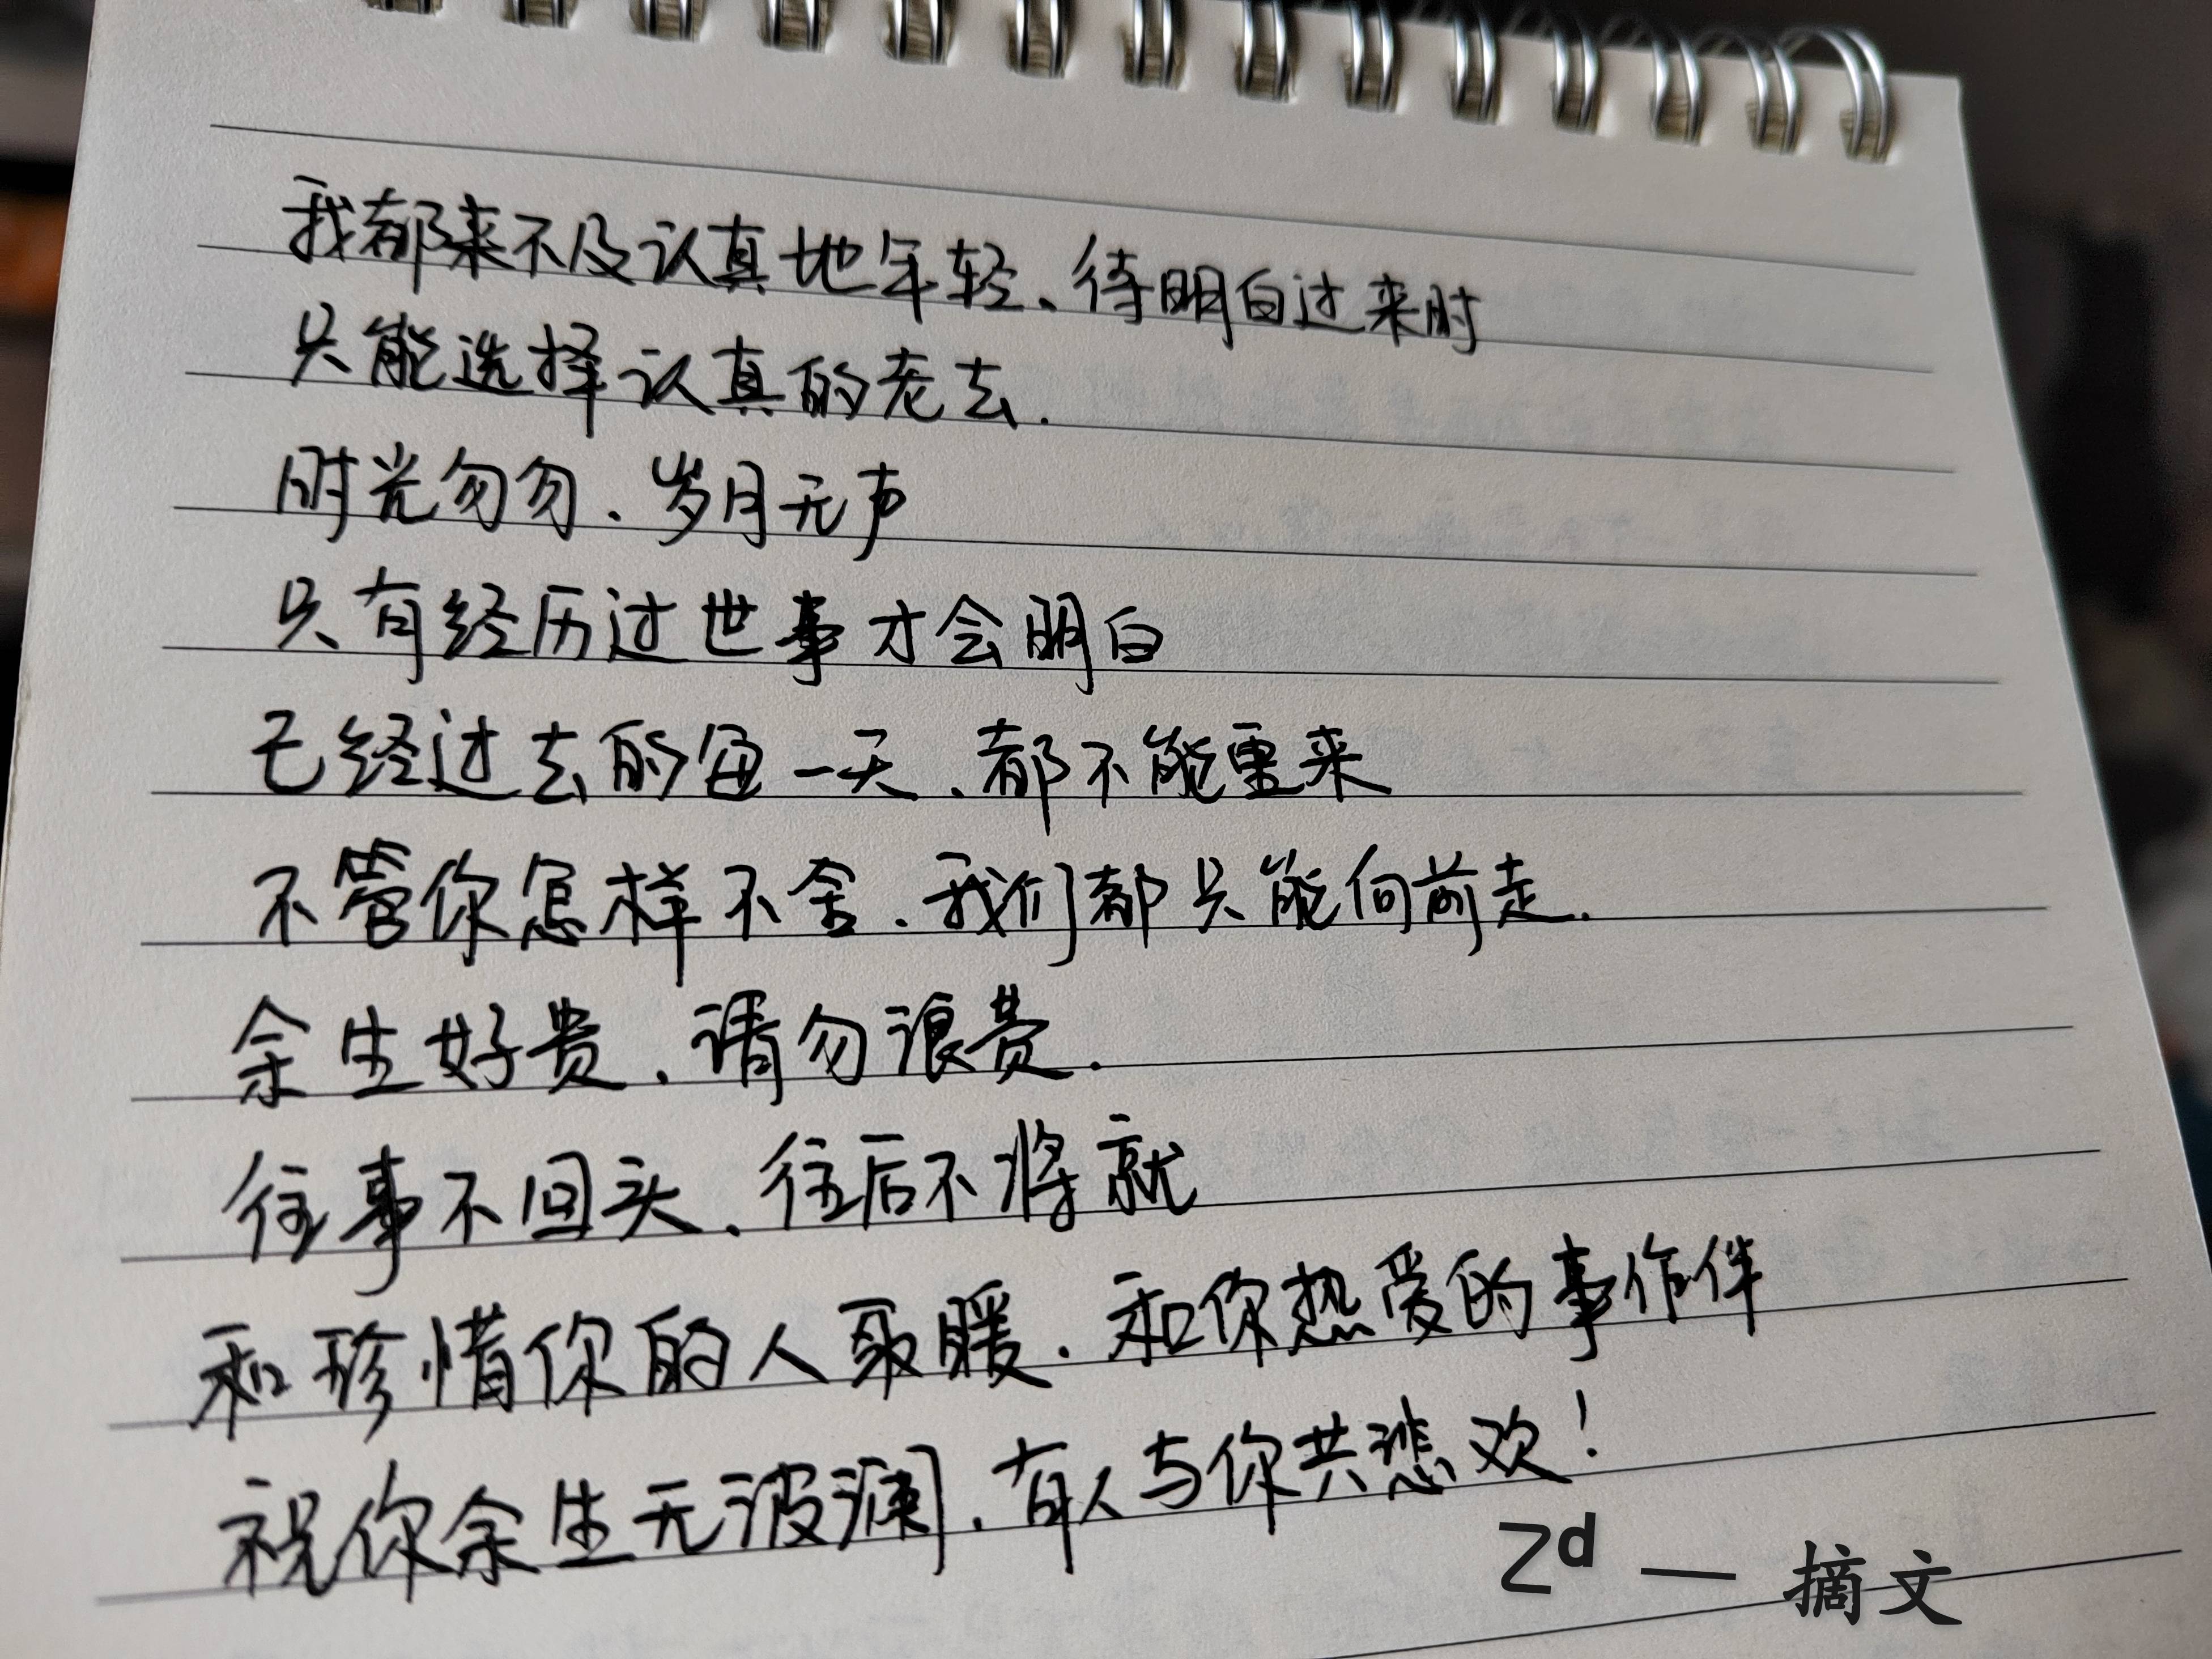 我都来不及认真地年轻、待明白过来时
只能选择认真的老去.
时光匆匆、岁月无声
只有经历过世事才会明白
已经过去的每一天、都不能重来
不管你怎样不舍、我们都只能向前走.
余生好贵、请勿浪费.
往事不回头、往后不将就
和珍惜你的人取暖、和你热爱的事作伴
祝你余生无波澜、有人与你共悲欢!
Zd — 摘文